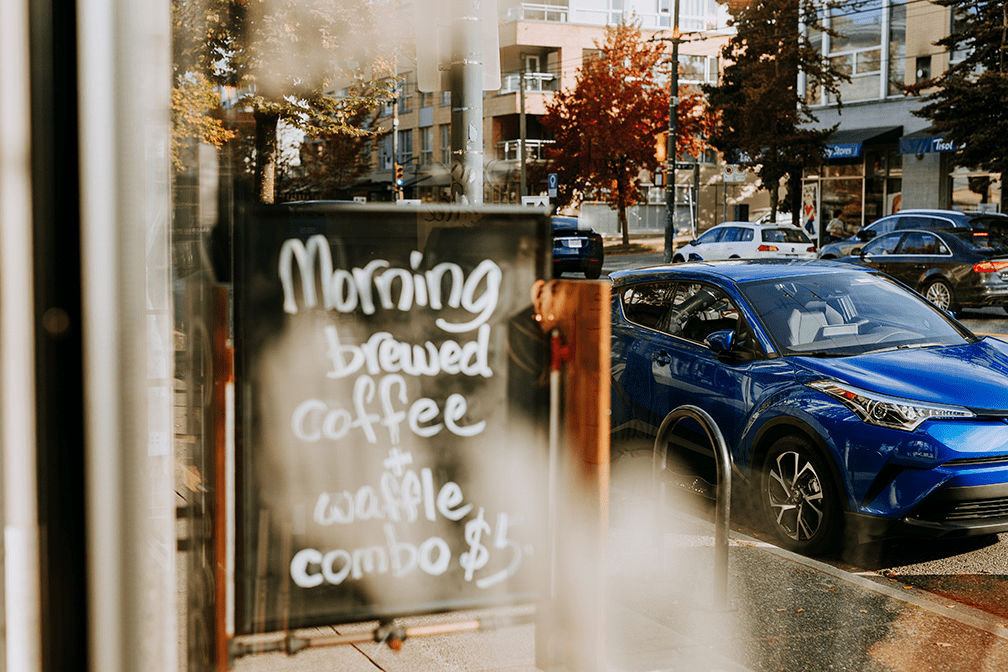 Morning
brewed
coffee
+
waffle
combo $5
Tisol